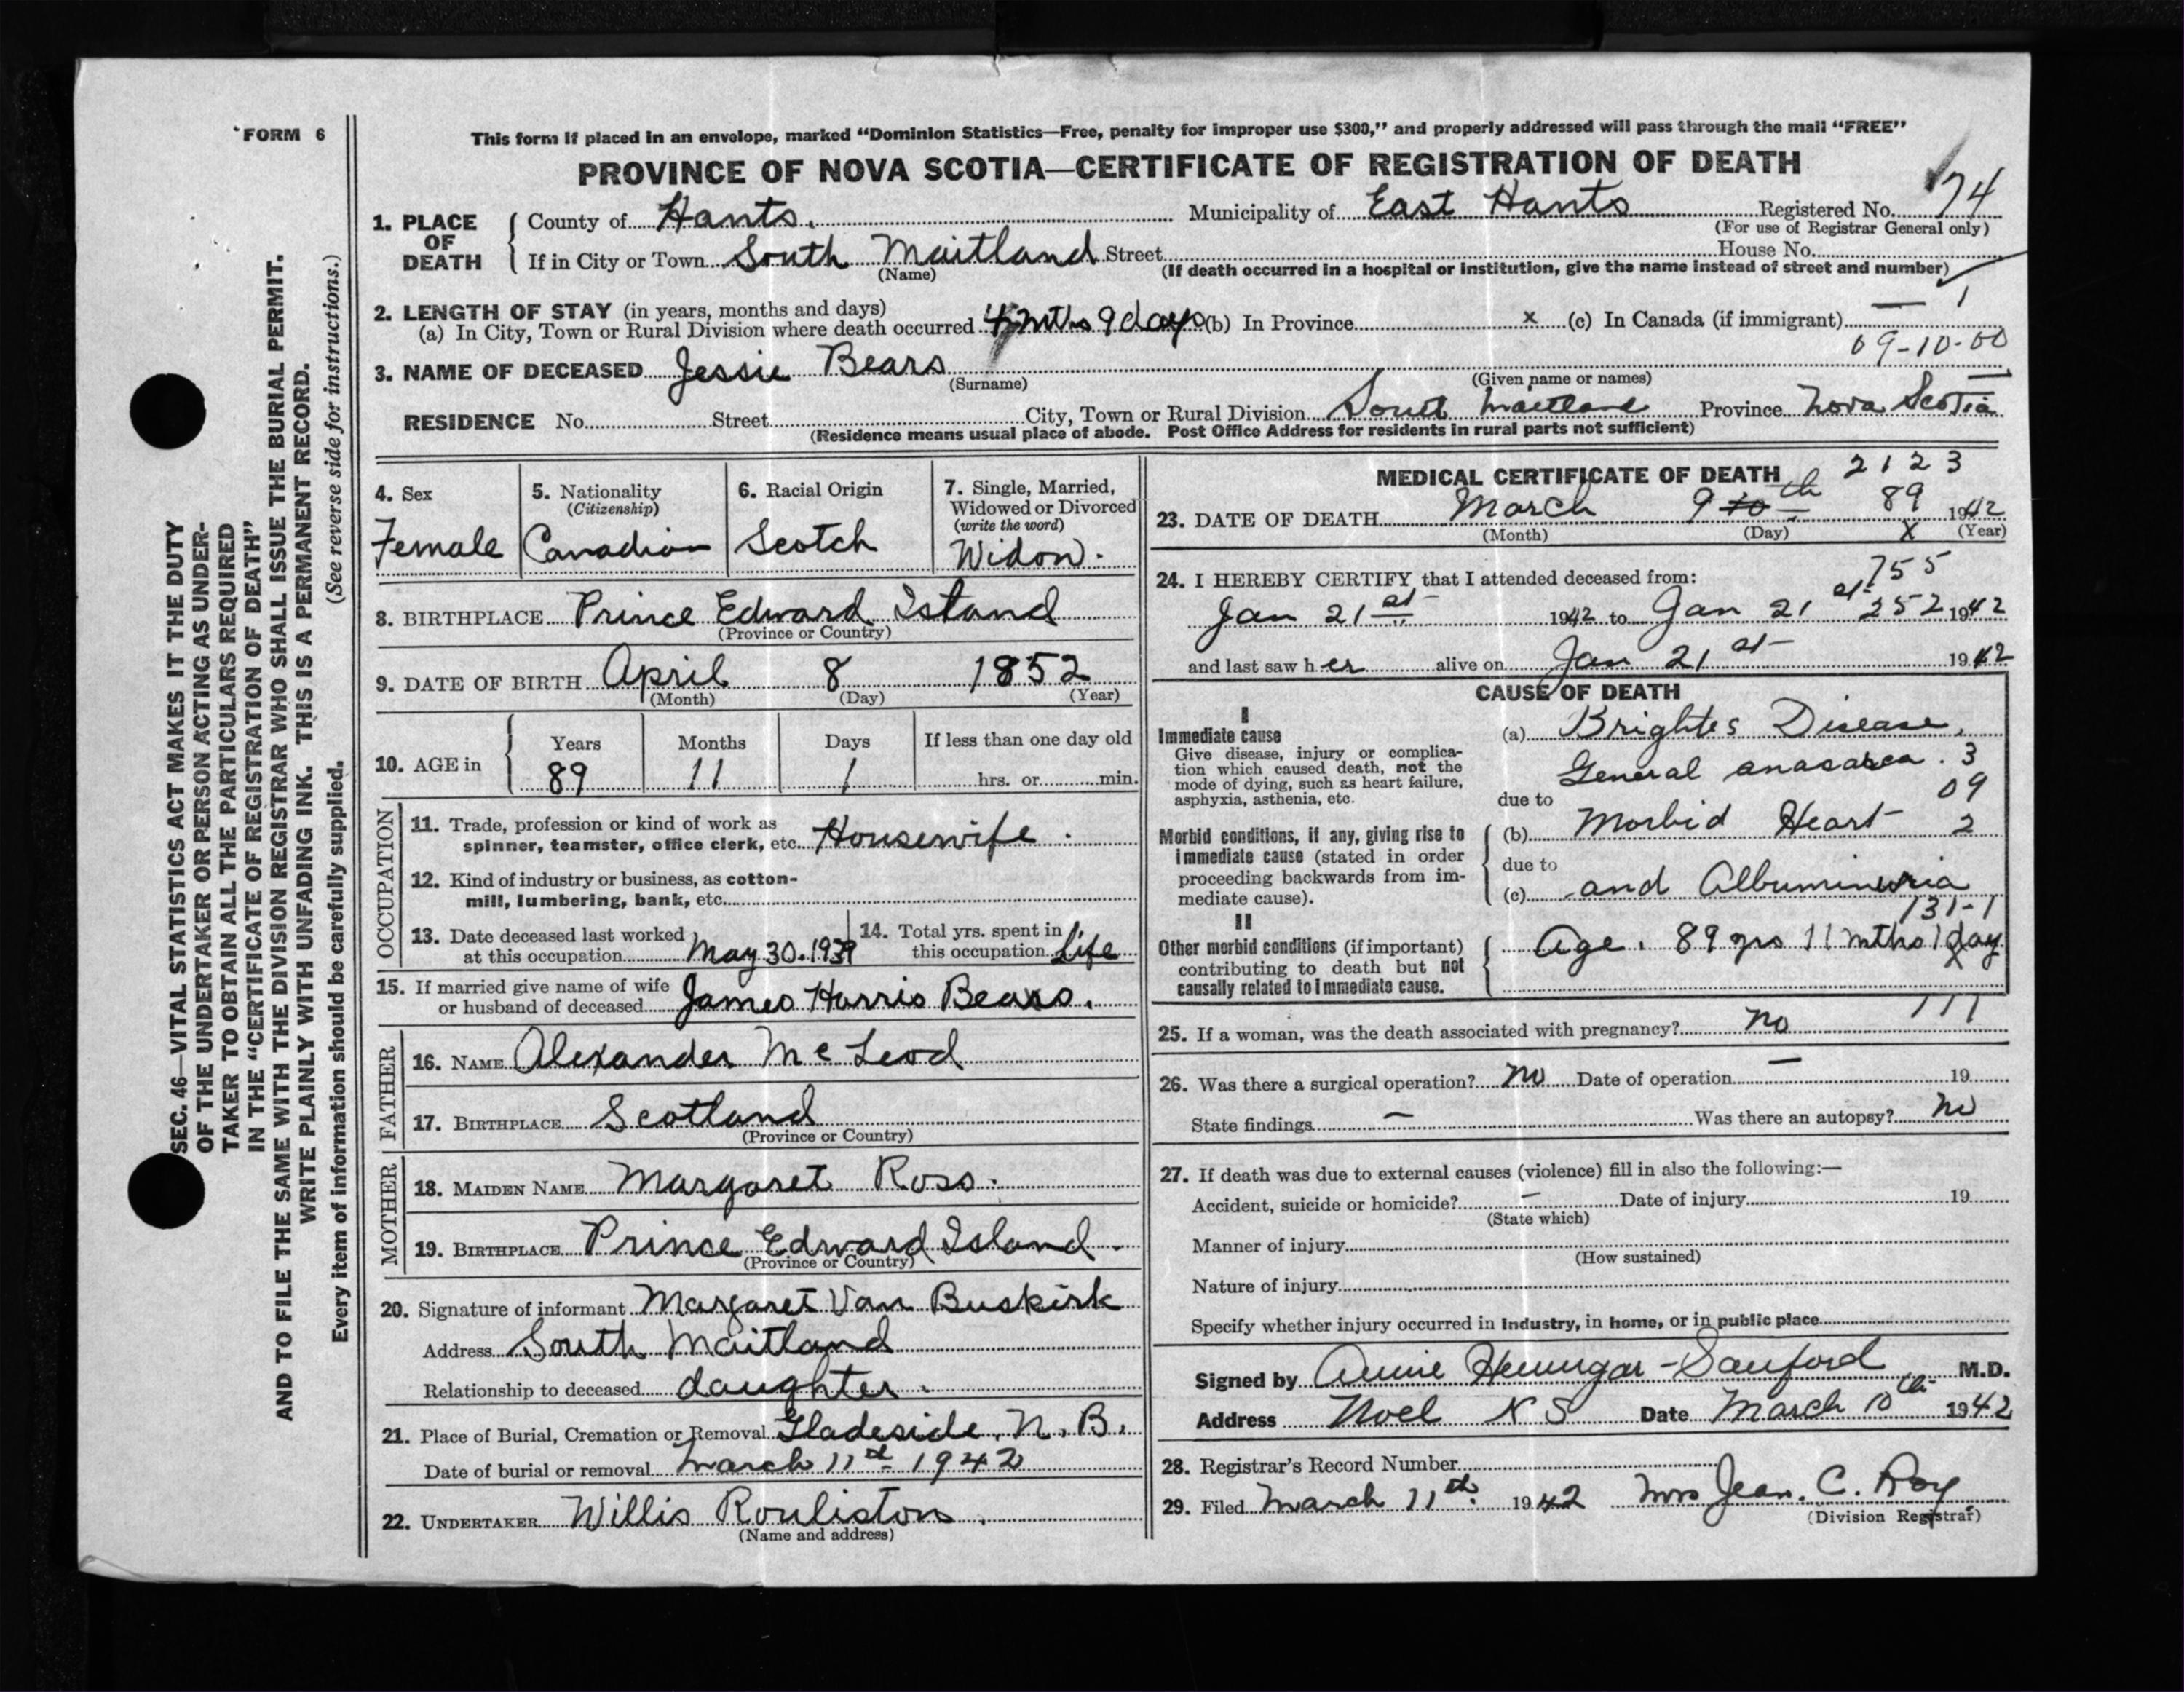 FORM 6
This form if placed in an envelope, marked "Dominion Statistics—Free, penalty for improper use $300," and properly addressed will pass through the mail "FREE"
PROVINCE OF NOVA SCOTIA—CERTIFICATE OF REGISTRATION OF DEATH
1. PLACE OF DEATH County of Hants. Municipality of East Hants Registered No. 74
(For use of Registrar General only)
If in City or Town South Maitland Street House No.
(Name) (If death occurred in a hospital or institution, give the name instead of street and number)
2. LENGTH OF STAY (in years, months and days) — 1
(a) In City, Town or Rural Division where death occurred 4 mths 9 days (b) In Province x (c) In Canada (if immigrant)
09-10-00
3. NAME OF DECEASED Jessie Bears
(Surname) (Given name or names)
RESIDENCE No. Street City, Town or Rural Division South Maitland Province Nova Scotia
(Residence means usual place of abode. Post Office Address for residents in rural parts not sufficient)
4. Sex
Female
5. Nationality
(Citizenship)
Canadian
6. Racial Origin
Scotch
7. Single, Married,
Widowed or Divorced
(write the word)
Widow.
8. BIRTHPLACE Prince Edward Island
(Province or Country)
9. DATE OF BIRTH April 8 1852
(Month) (Day) (Year)
10. AGE in
Years Months Days If less than one day old
89 11 1 hrs. or min.
OCCUPATION
11. Trade, profession or kind of work as
spinner, teamster, office clerk, etc. Housewife.
12. Kind of industry or business, as cotton-
mill, lumbering, bank, etc.
13. Date deceased last worked
at this occupation May 30. 1939
14. Total yrs. spent in
this occupation Life
15. If married give name of wife
or husband of deceased James Harris Bears.
FATHER
16. NAME Alexander McLeod
17. BIRTHPLACE Scotland
(Province or Country)
MOTHER
18. MAIDEN NAME Margaret Ross.
19. BIRTHPLACE Prince Edward Island
(Province or Country)
20. Signature of informant Margaret Van Buskirk
Address South Maitland
Relationship to deceased daughter.
21. Place of Burial, Cremation or Removal Gladeside, N.B.
Date of burial or removal March 11th 1942
22. UNDERTAKER Willis Rouliston.
(Name and address)
MEDICAL CERTIFICATE OF DEATH 2123
89
23. DATE OF DEATH March 9 10 th 1942
(Month) (Day) x (Year)
24. I HEREBY CERTIFY that I attended deceased from: 755
Jan 21st 1942 to Jan 21st 252 1942
and last saw her alive on Jan 21st 1942
CAUSE OF DEATH
I
Immediate cause
Give disease, injury or complica-
tion which caused death, not the
mode of dying, such as heart failure,
asphyxia, asthenia, etc.
(a) Brightes Disease,
General anasarca. 3
09
due to
Morbid conditions, if any, giving rise to
immediate cause (stated in order
proceeding backwards from im-
mediate cause).
(b) Morbid Heart 2
due to
(c) and Albuminuria
131-1
II
Other morbid conditions (if important)
contributing to death but not
causally related to immediate cause.
Age. 89 yrs 11 mths 1 day
111
25. If a woman, was the death associated with pregnancy? no
26. Was there a surgical operation? no Date of operation — 19
State findings — Was there an autopsy? no
27. If death was due to external causes (violence) fill in also the following:—
Accident, suicide or homicide? — Date of injury 19
(State which)
Manner of injury
(How sustained)
Nature of injury
Specify whether injury occurred in industry, in home, or in public place
Signed by Annie Hennigar-Sanford M.D.
Address Noel N S Date March 10th 1942
28. Registrar's Record Number
29. Filed March 11th. 1942 Mrs Jean. C. Roy
(Division Registrar)
SEC. 46—VITAL STATISTICS ACT MAKES IT THE DUTY
OF THE UNDERTAKER OR PERSON ACTING AS UNDER-
TAKER TO OBTAIN ALL THE PARTICULARS REQUIRED
IN THE "CERTIFICATE OF REGISTRATION OF DEATH"
AND TO FILE THE SAME WITH THE DIVISION REGISTRAR WHO SHALL ISSUE THE BURIAL PERMIT.
WRITE PLAINLY WITH UNFADING INK. THIS IS A PERMANENT RECORD.
Every item of information should be carefully supplied. (See reverse side for instructions.)